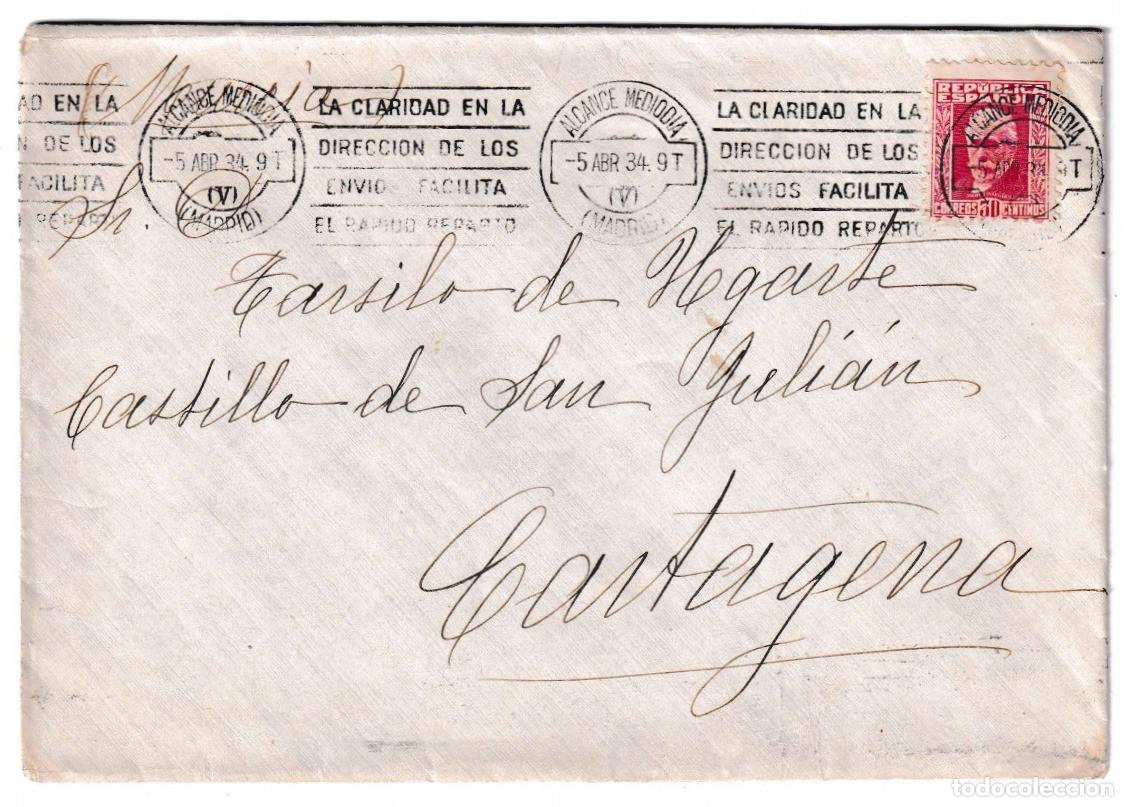 (Murcia)
AD EN LA
N DE LOS
FACILITA
REPARTO
ALCANCE MEDIODIA
-5 ABR 34. 9T
(V)
(MADRID)
LA CLARIDAD EN LA
DIRECCION DE LOS
ENVIOS FACILITA
EL RAPIDO REPARTO
ALCANCE MEDIODIA
-5 ABR 34. 9T
(V)
(MADRID)
LA CLARIDAD EN LA
DIRECCION DE LOS
ENVIOS FACILITA
EL RAPIDO REPARTO
REPUBLICA
ESPAÑOLA
CORREOS 30 CENTIMOS
ALCANCE MEDIODIA
-5 ABR 34. 9T
Sr. D.
Tarsilo de Ugarte
Castillo de San Julián
Cartagena
todocoleccion